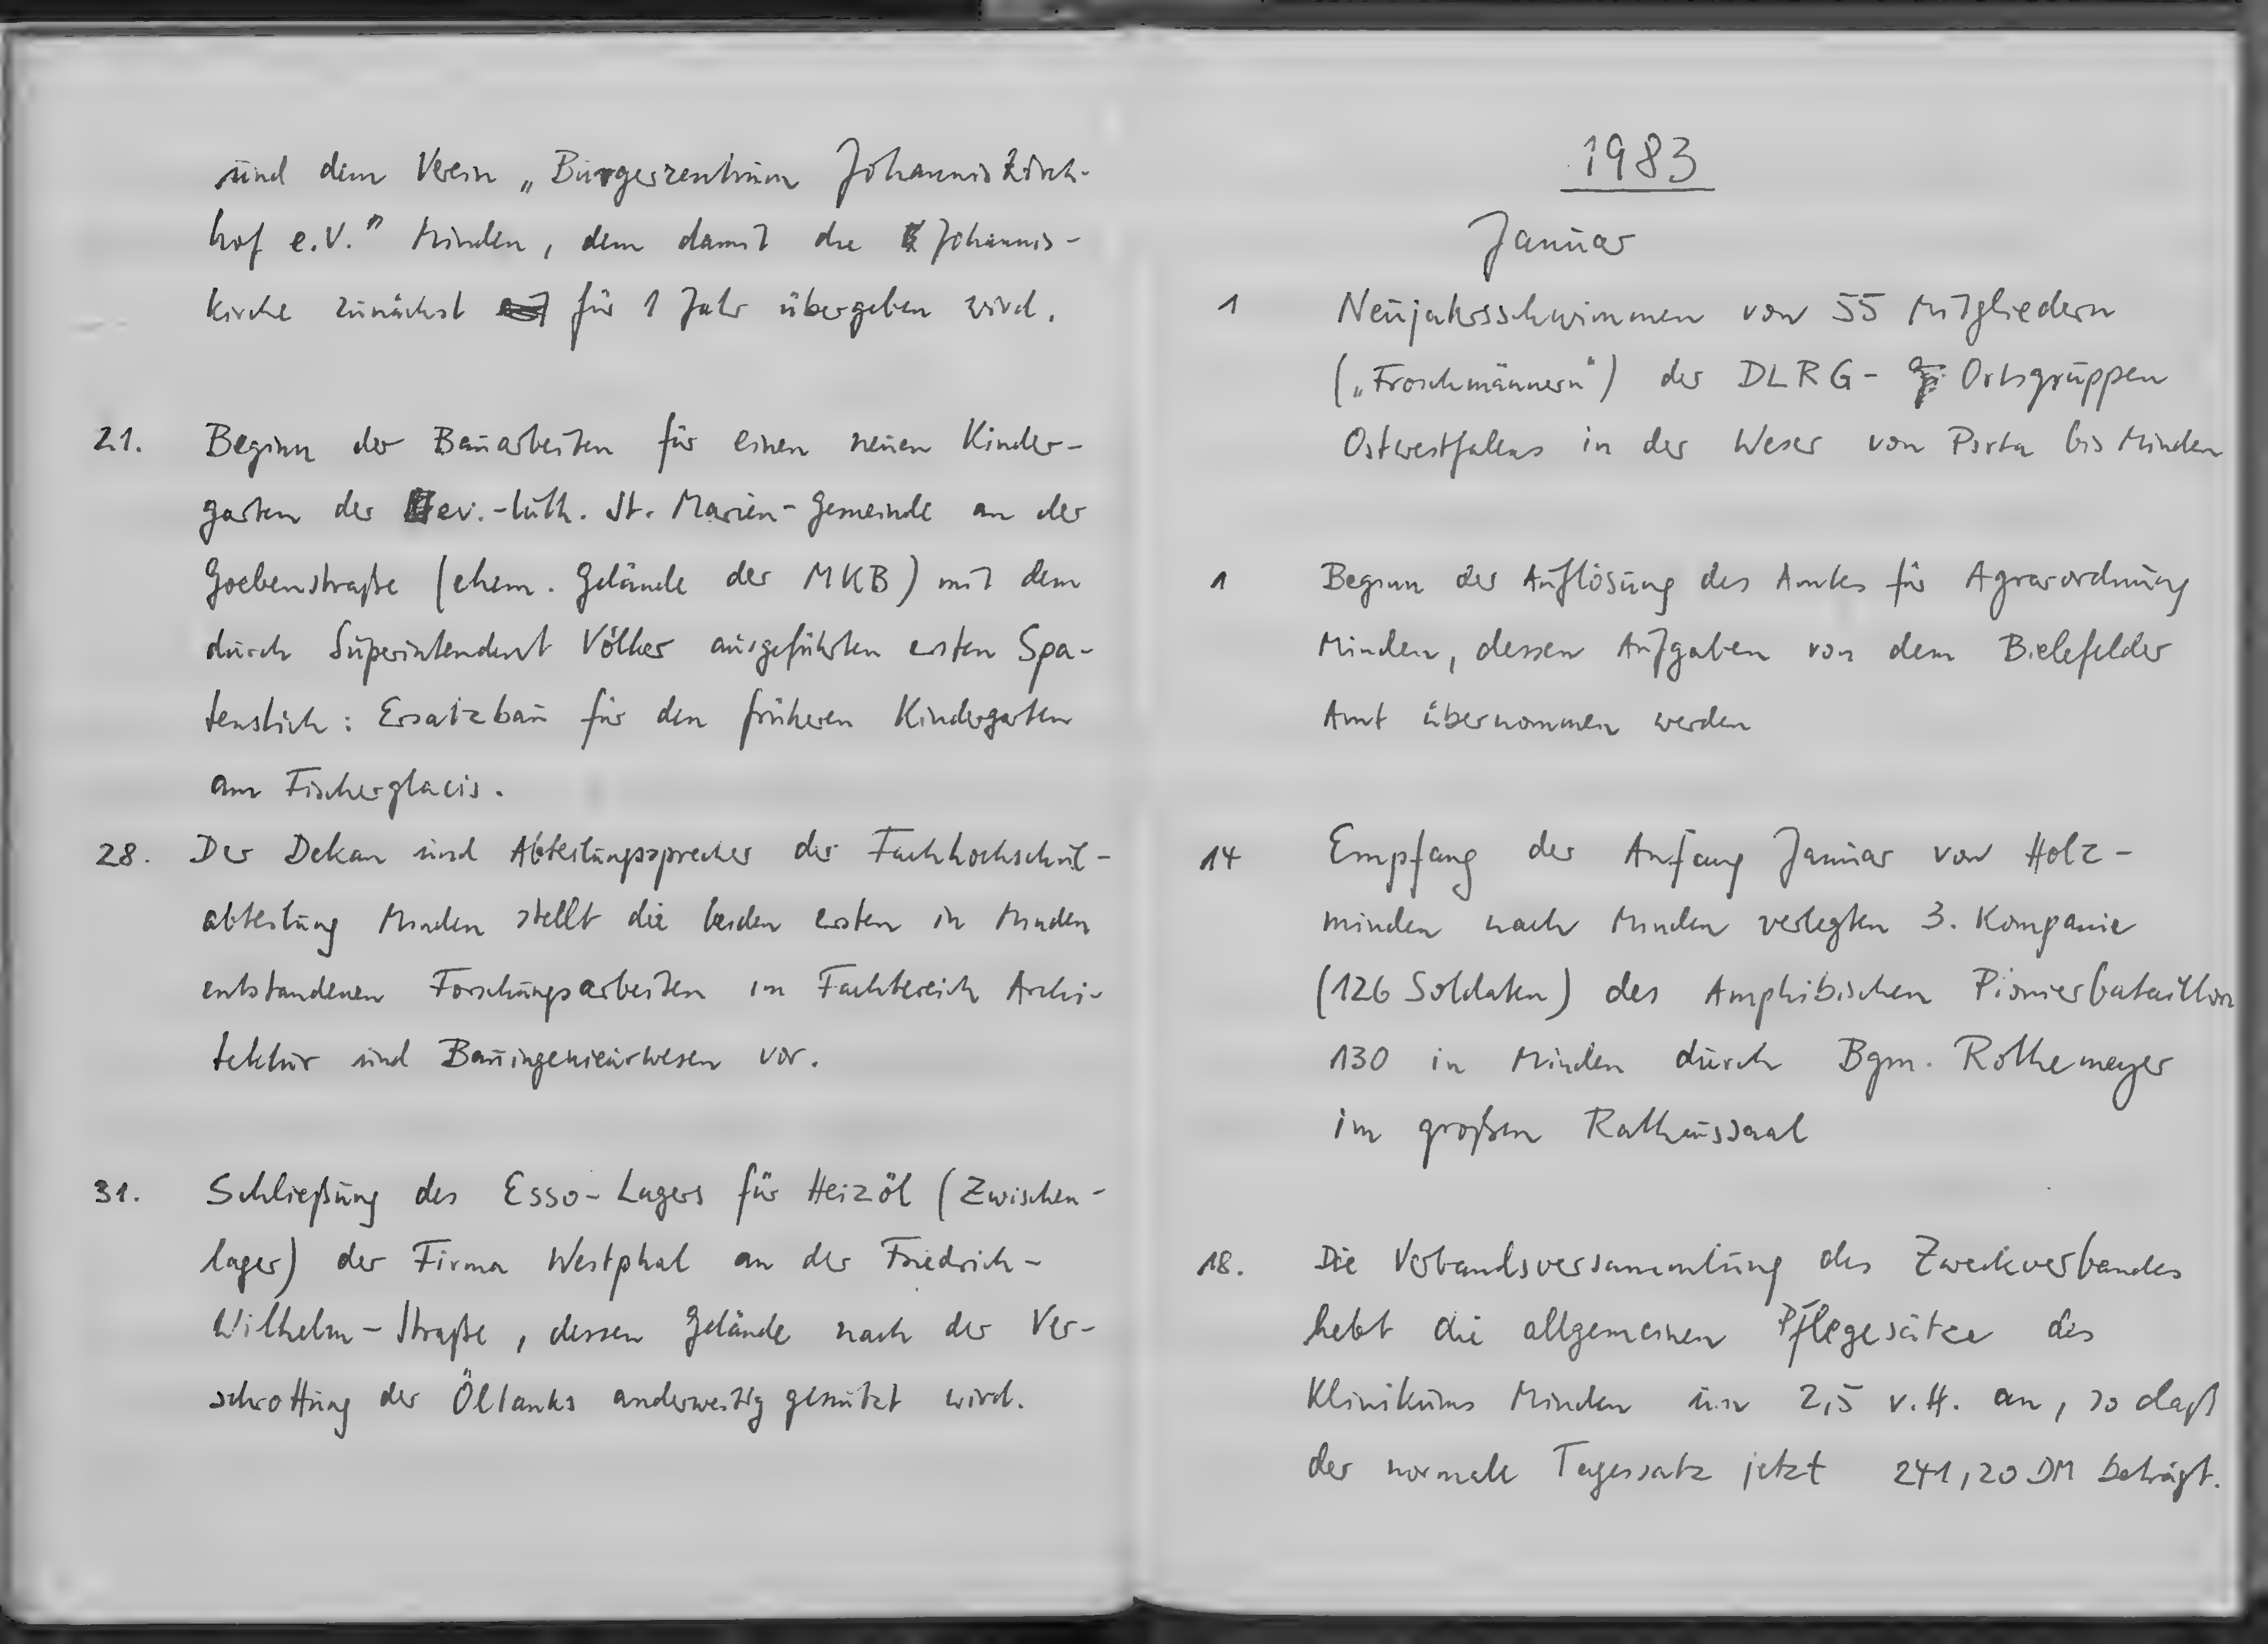 und dem Verein „Bürgerzentrum Johanniskirch-
hof e.V." Minden, dem damit die Johannis-
kirche zunächst für 1 Jahr übergeben wird.
21. Beginn der Bauarbeiten für einen neuen Kinder-
garten der ev.-luth. St. Marien-Gemeinde an der
Goebenstraße (ehem. Gelände der MKB) mit dem
durch Superintendent Völker ausgeführten ersten Spa-
tenstich: Ersatzbau für den früheren Kindergarten
am Fischerglacis.
28. Der Dekan und Abteilungssprecher der Fachhochschul-
abteilung Minden stellt die beiden ersten in Minden
entstandenen Forschungsarbeiten im Fachbereich Archi-
tektur und Bauingenieurwesen vor.
31. Schließung des Esso-Lagers für Heizöl (Zwischen-
lager) der Firma Westphal an der Friedrich-
Wilhelm-Straße, dessen Gelände nach der Ver-
schrottung der Öltanks anderweitig genutzt wird.
1983
Januar
1 Neujahrsschwimmen von 55 Mitgliedern
(„Froschmännern") der DLRG- Ortsgruppen
Ostwestfalens in der Weser von Porta bis Minden
1 Beginn der Auflösung des Amtes für Agrarordnung
Minden, dessen Aufgaben von dem Bielefelder
Amt übernommen werden
14 Empfang der Anfang Januar von Holz-
minden nach Minden verlegten 3. Kompanie
(126 Soldaten) des Amphibischen Pionierbataillon
130 in Minden durch Bgm. Rothemeyer
im großen Rathaussaal
18. Die Verbandsversammlung des Zweckverbandes
hebt die allgemeinen Pflegesätze des
Klinikums Minden um 2,5 v.H. an, so daß
der normale Tagessatz jetzt 241,20 DM beträgt.